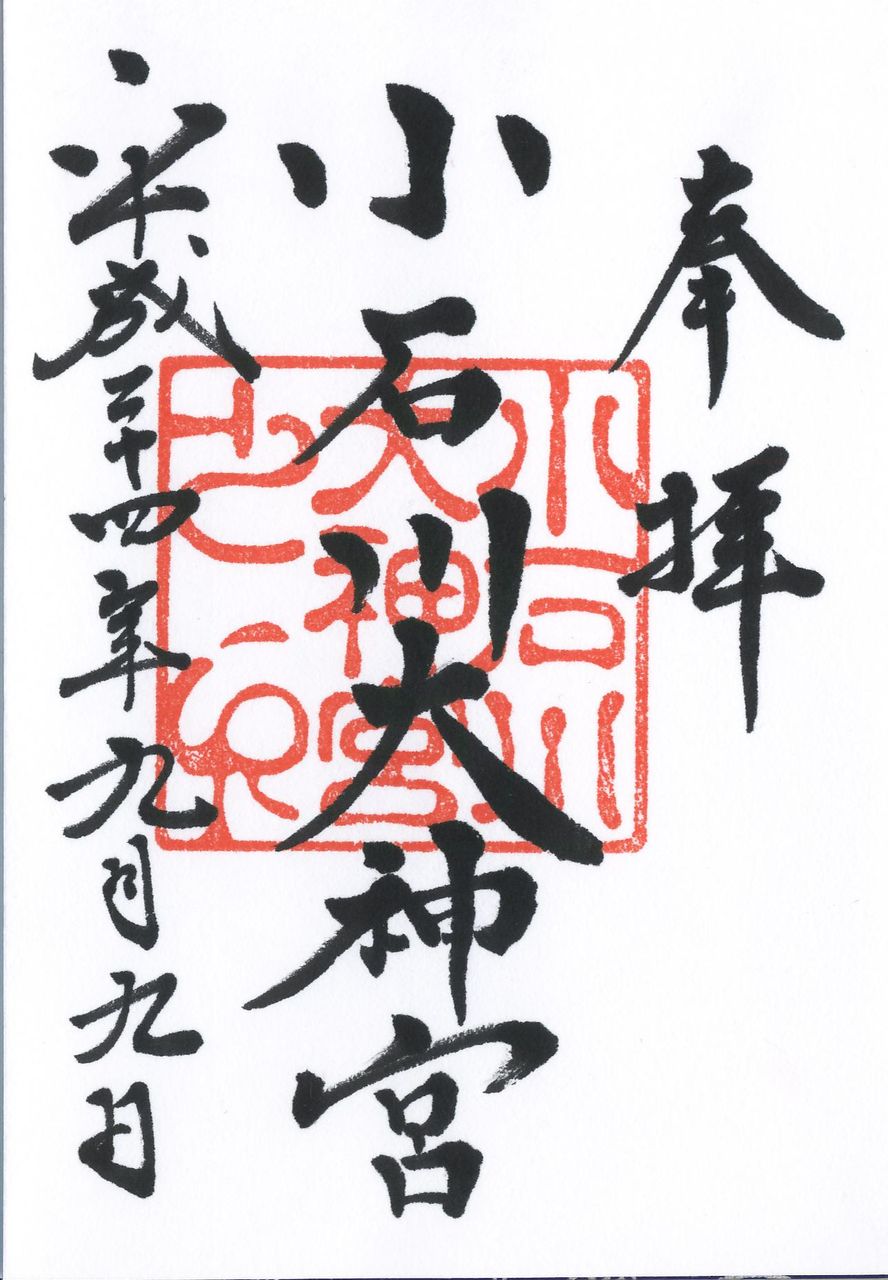 奉拝
小石川大神宮
平成二十四年九月九日
小石川
大神宮
之印